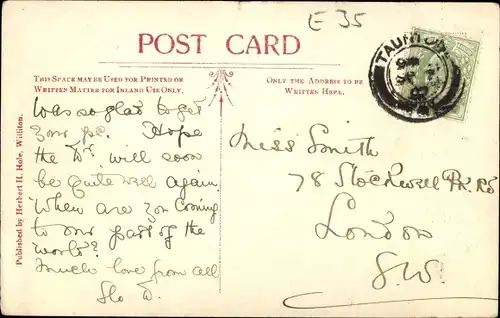 E 35
POST CARD
THIS SPACE MAY BE USED FOR PRINTED OR
WRITTEN MATTER FOR INLAND USE ONLY.
ONLY THE ADDRESS TO BE
WRITTEN HERE.
TAUNTON
Was so glad to get
your pc. Hope
the Dr. will soon
be quite well again.
When are you coming
to our part of the
world?
Much love from all
Miss Smith
78 Stockwell Pk. Rd
London
S.W.
Published by Herbert H. Hole, Williton.